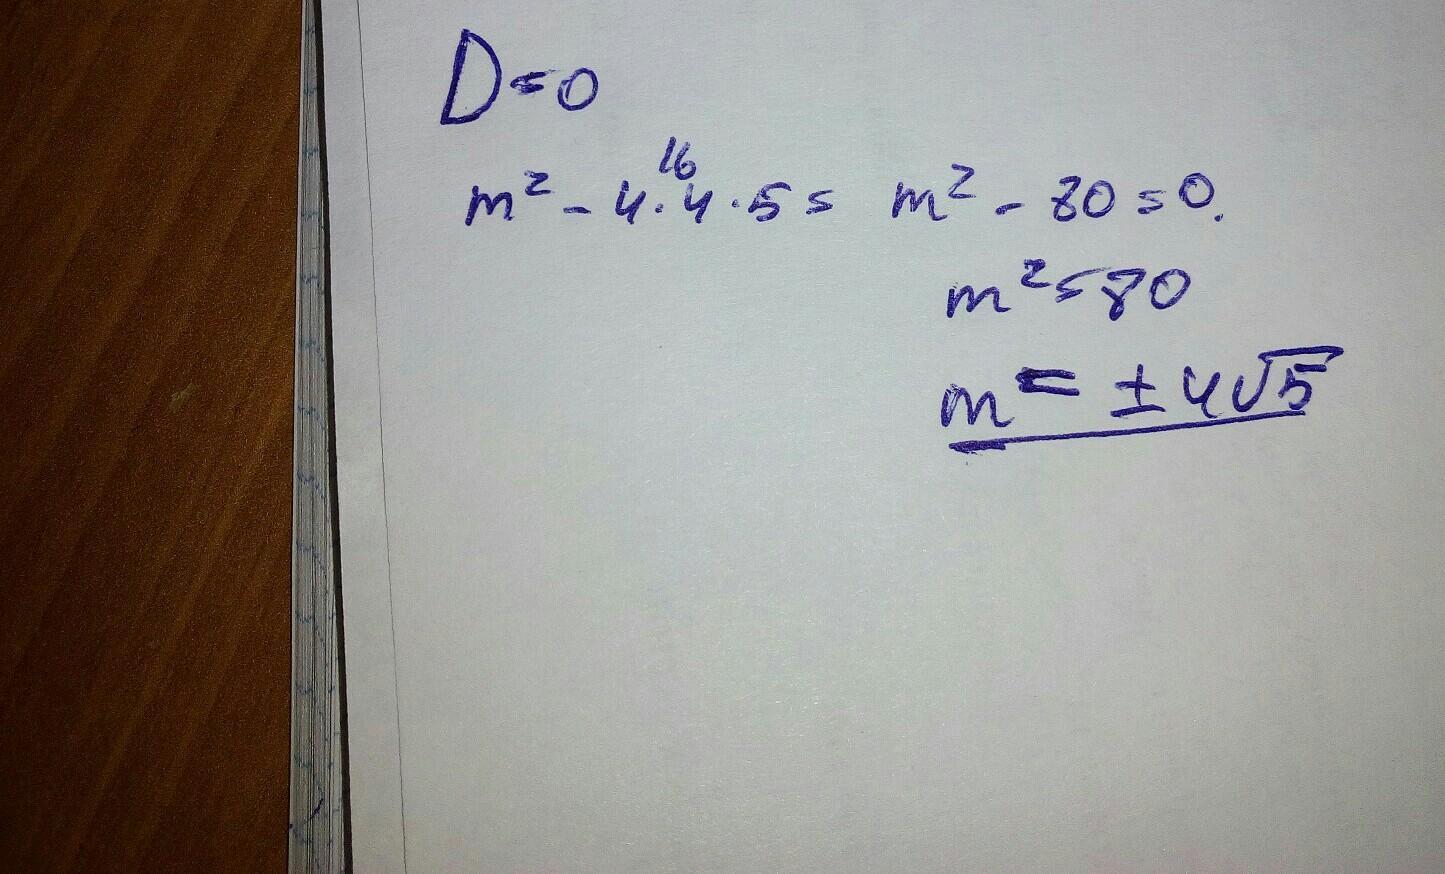 D=0
16
m² - 4·4·5 = m² - 80 = 0.
m² = 80
m = ± 4√5